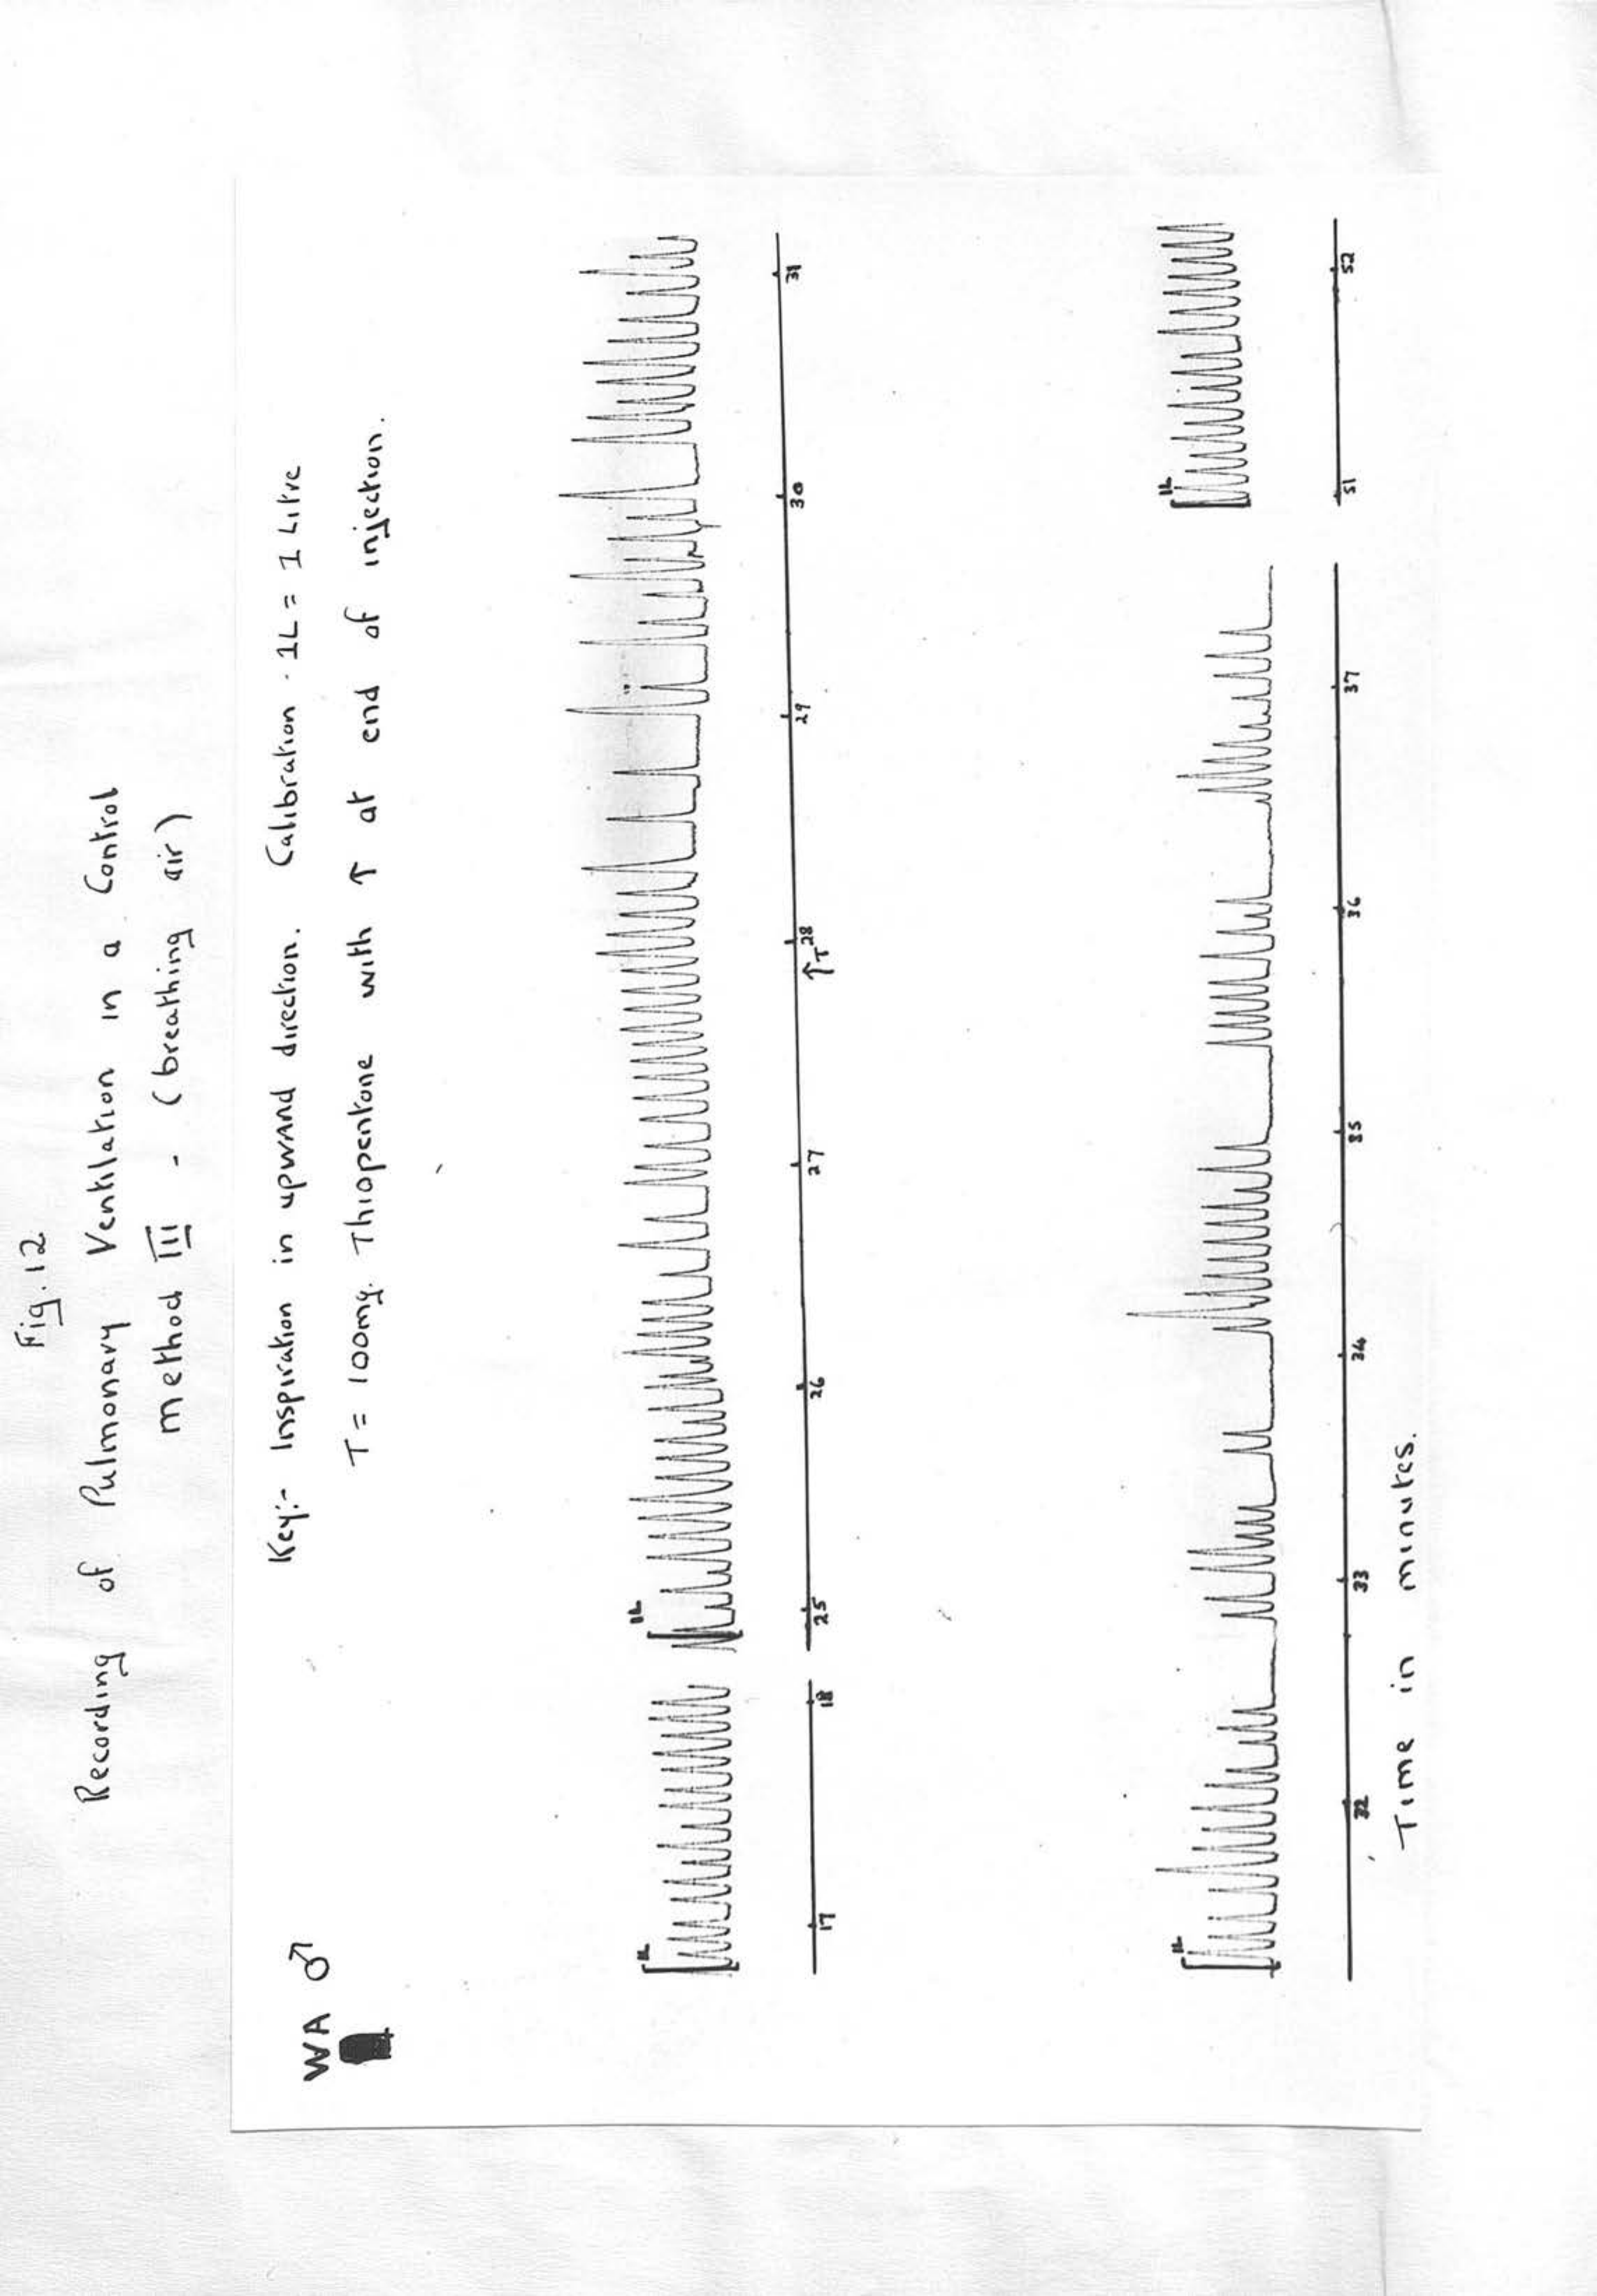 Fig. 12
Recording of Pulmonary Ventilation in a Control
method III - (breathing air)
WA ♂
Key:- Inspiration in upward direction. Calibration 1L = 1 Litre
T = 100mg. Thiopentone with ↑ at end of injection.
1L
1L
17 18 25 26 27 28 29 30 31
↑T
1L
1L
32 33 34 35 36 37 51 52
Time in minutes.